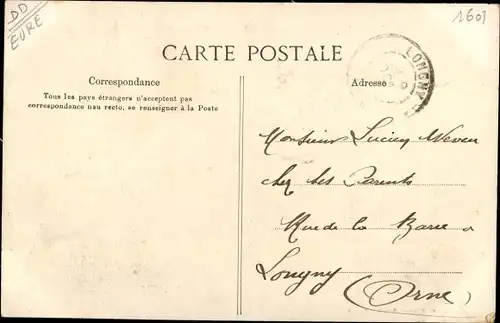 DD
EURE
1603
CARTE POSTALE
LONGNY
Correspondance
Adresse
Tous les pays étrangers n'acceptent pas
correspondance nau recto, se renseigner à la Poste
Monsieur Lucien Neveu
chez ses Parents
Rue de la Barre à
Longny
(Orne)